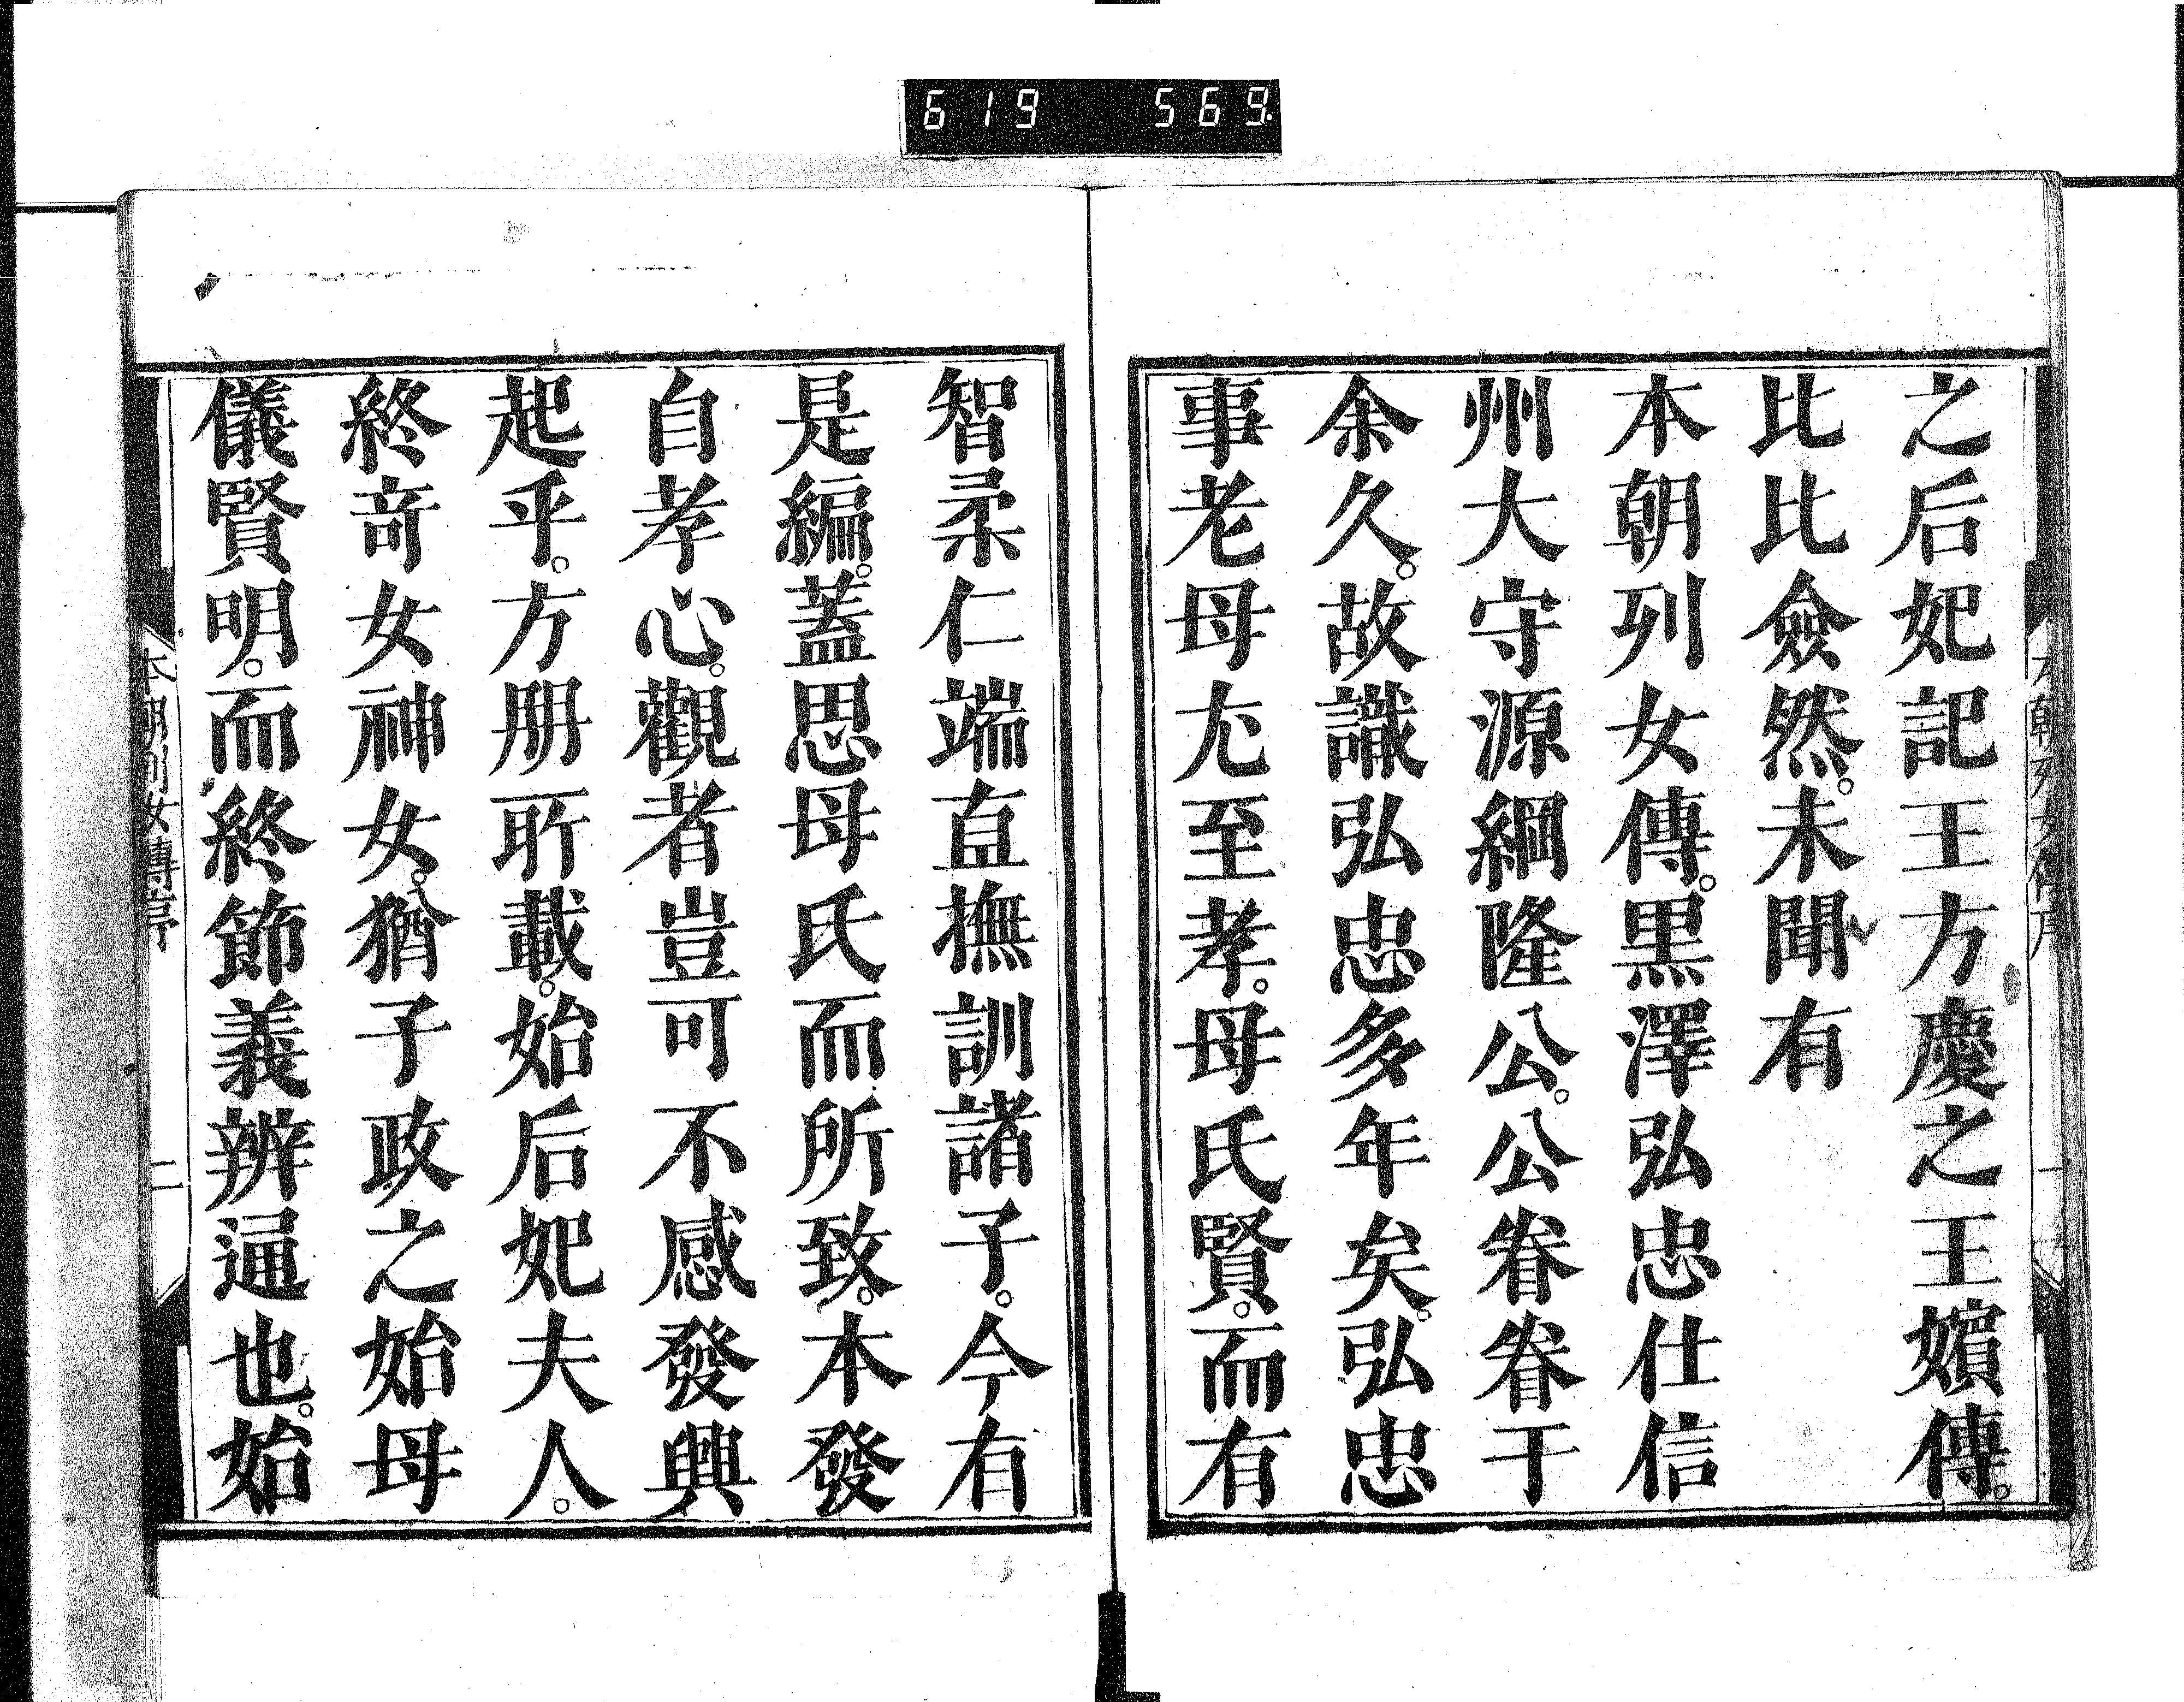 619 569
之后妃記王方慶之王嬪傳。
比比僉然。未聞有
本朝列女傳。黒澤弘忠仕信
州大守源綱隆公。公眷眷于
余久。故識弘忠多年矣。弘忠
事老母尤至孝。母氏賢。而有
智柔仁端直撫訓諸子。今有
是編。蓋思母氏而所致。本發
自孝心。觀者豈可不感發興
起乎。方册所載。始后妃夫人。
終竒女神女。猶子政之始母
儀賢明。而終節義辨通也。始
本朝列女傳序 二